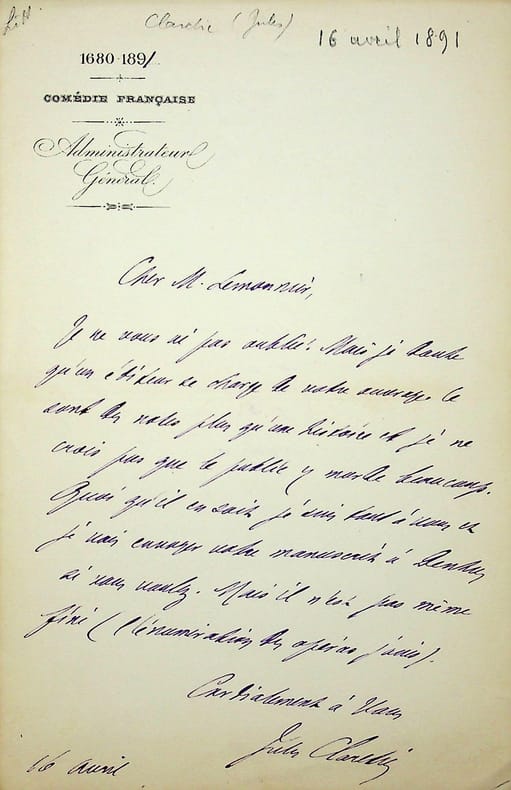 Litt
Claretie (Jules)
16 avril 1891
1680-1891
COMÉDIE FRANÇAISE
Administrateur
Général.
Cher M. Lemonnier,
Je ne vous ai pas oublié. Mais je doute
qu'un éditeur se charge de votre ouvrage. Ce
sont des notes plus qu'une histoire et je ne
crois pas que le public y morde beaucoup.
Quoi qu'il en soit je suis tout à vous et
je vais envoyer votre manuscrit à Dentu
si vous voulez. Mais il n'est pas même
fini (l'énumération des opéras joués).
Cordialement à vous
Jules Claretie
16 avril